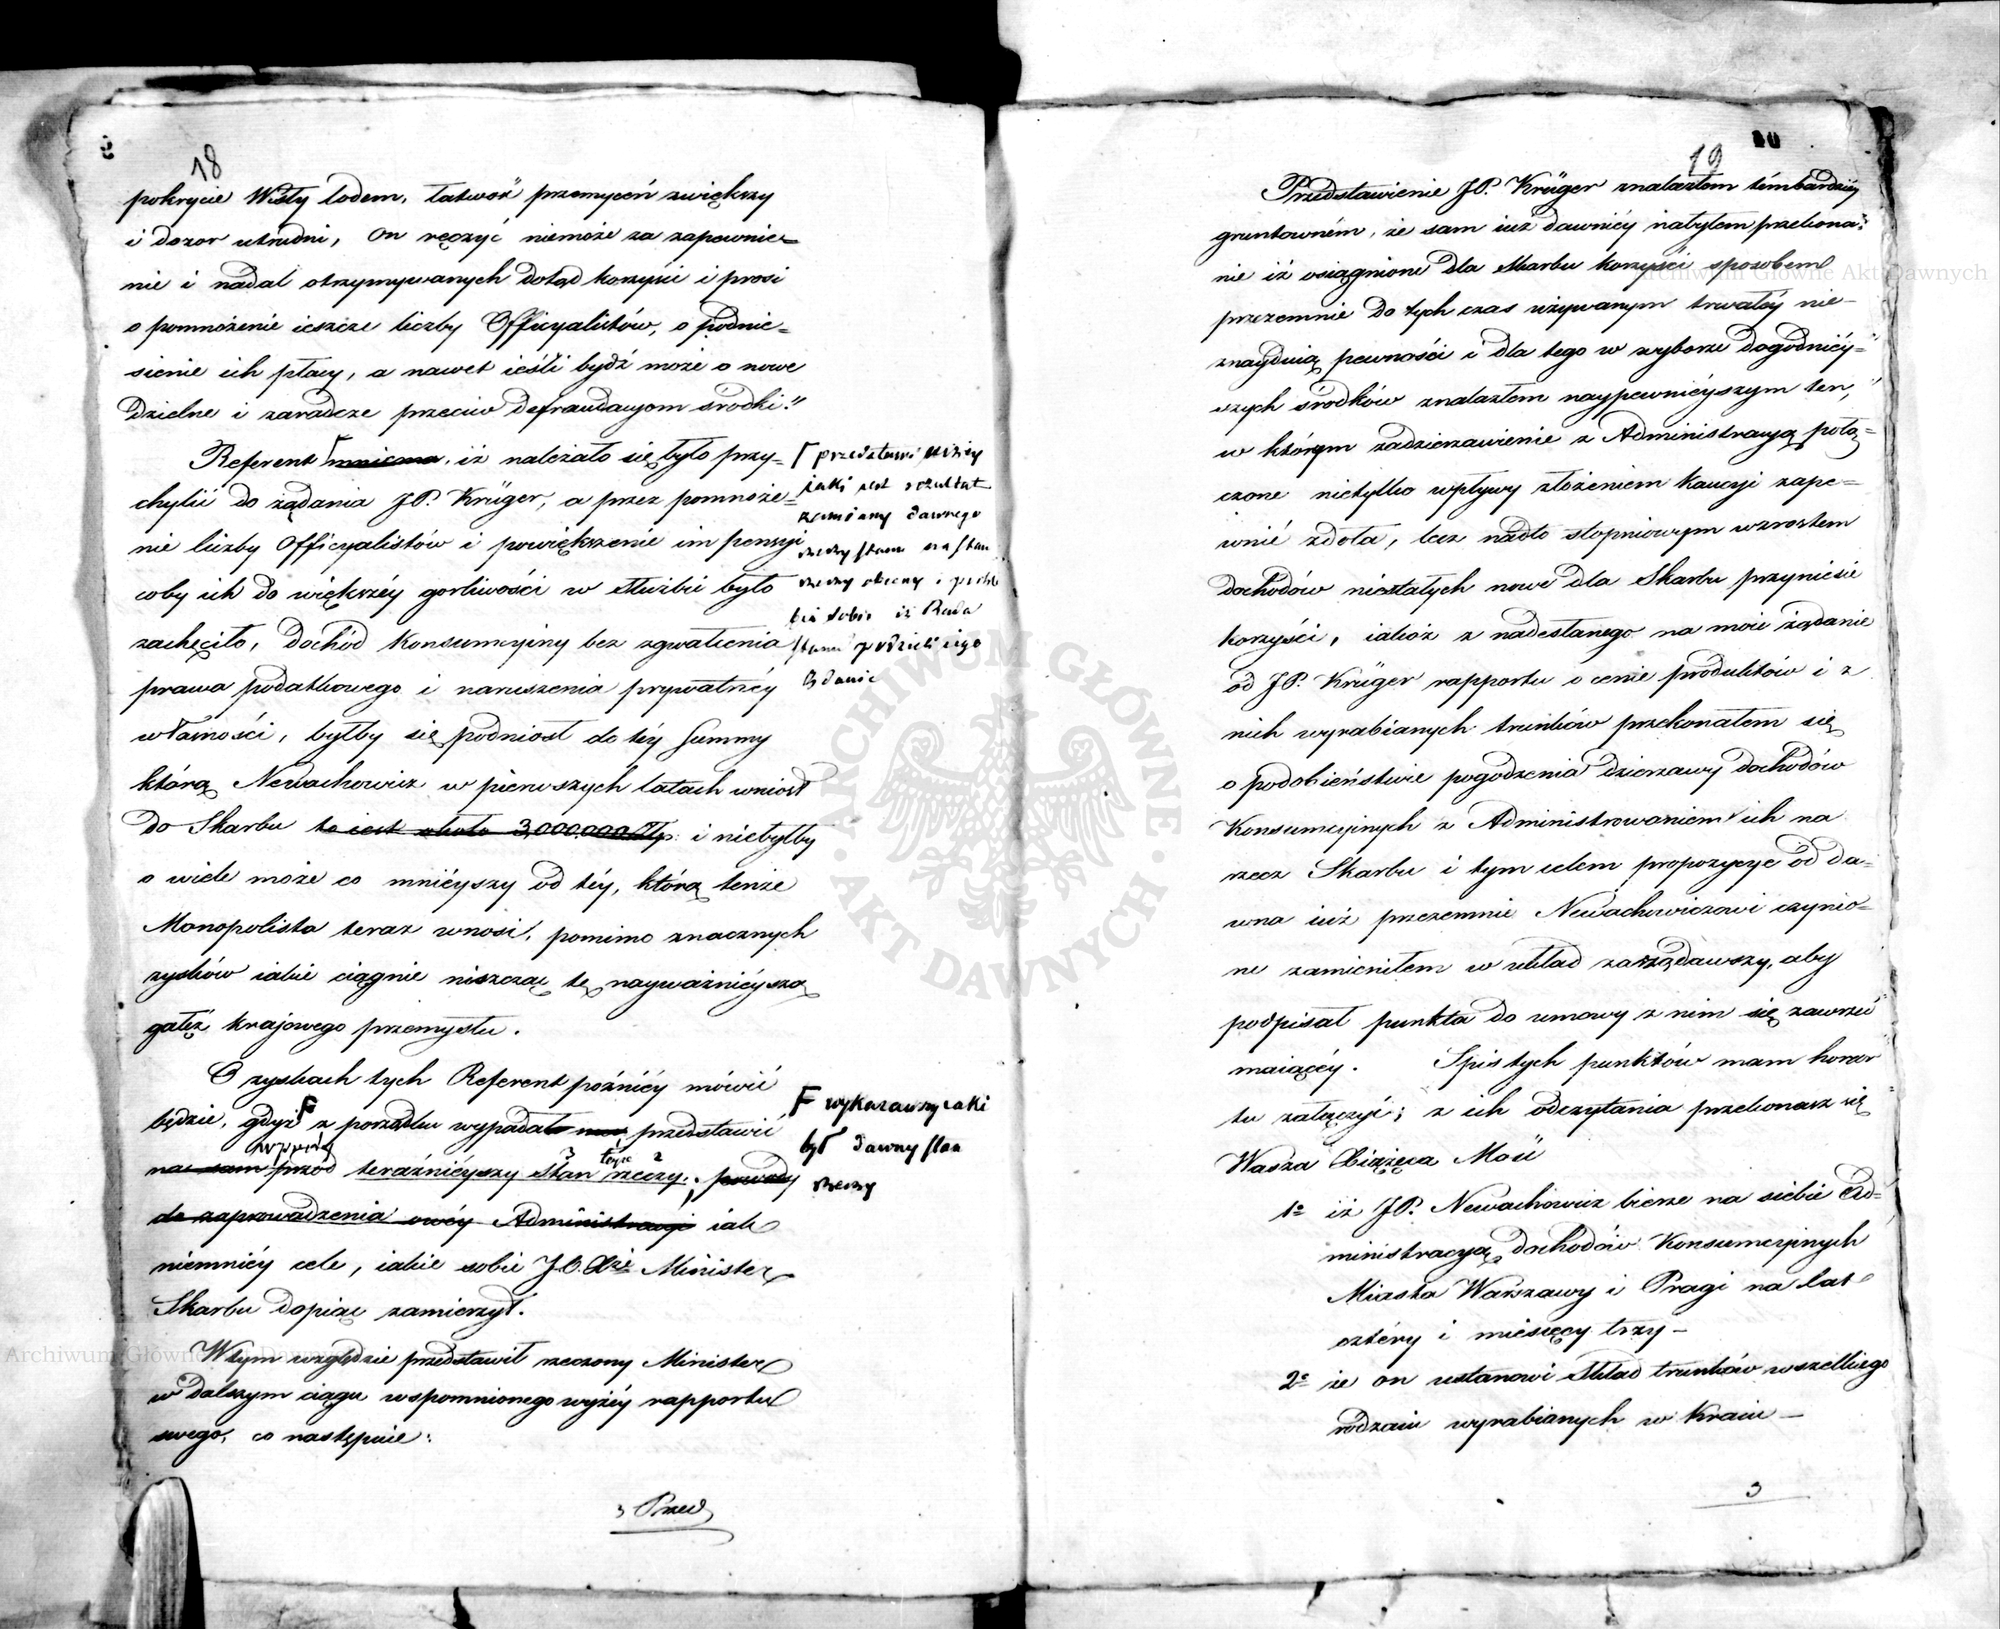 18
pokrycie Wisły lodem, łatwość przemyceń zwiększy
i dozor utrudni, on ręczyć niemoże za zapewnie=
nie i nadal otrzymywanych dotąd korzyści i prosi
o pomnożenie ieszcze liczby Officyalistów, o podnie=
sienie ich płacy, a nawet ieśli bydź może o nowe
dzielne i zaradcze przeciw defraudacyom środki."
Referent mniema, iż należało się było przy=
chylić do żądania JP. Krüger, a przez pomnoże=
nie liczby Officyalistów i powiększenie im pensyi
coby ich do większéy gorliwości w służbie było
zachęciło, dochód konsumcyiny bez zgwałcenia
prawa podatkowego i naruszenia prywatnéy
własności, byłby się podniosł do téy Summy
którą Newachowicz w pierwszych latach wniosł
do Skarbu to iest około 3,000,000 złp. i niebyłby
o wiele może co mnieyszy od téy, którą tenże
Monopolista teraz wnosi, pomimo znacznych
zysków iakie ciągnie niszcząc tę nayważnieyszą
gałęź krajowego przemysłu.
Γ przedstawi niżey
jaki jest rezultat
zamiany dawnego
rzeczy stanu na stan
rzeczy obecny i
sobie iż Rada
Stanu podzieli iego
zdanie
O zyskach tych Referent poźniéy mówić
będzie, gdyż F z porządku wypadało mu przedstawić
na sam przód teraźnieyszy Stan rzeczy, powody
do zaprowadzenia owéy Administracyi iak
niemniéy cele, iakie sobie J.O. Xże Minister
Skarbu dopiąć zamierzył.
F wykazawszy iaki
był dawny stan
rzeczy
W tym względzie przedstawił rzeczony Minister
w dalszym ciągu wspomnionego wyżéy rapportu
swego, co następuie:
Przed
19
Przedstawienie JP. Krüger znalazłem tém bardziéy
gruntowném, że sam iuż dawniéy nabyłem przekona=
nie iż osiągnione dla Skarbu korzyści sposobem
przezemnie do tych czas używanym trwałéy nie=
znayduią pewności i dla tego w wyborze dogodniéy=
szych środków znalazłem naypewniéyszym ten,
w którym zadzierzawienie z Administracyą połą=
czone nietylko wpływy złożeniem kaucyi zape=
wnić zdoła, lecz nadto stopniowym wzrostem
dochodów niestałych nowe dla Skarbu przyniesie
korzyści, iakoż z nadesłanego na moie żądanie
od JP. Krüger rapportu o cenie produktów i z
nich wyrabianych trunków przekonałem się
o podobieństwie pogodzenia dzierzawy dochodów
Konsumcyinych z Administrowaniem ich na
rzecz Skarbu i tym celem propozycye od da=
wna iuż przezemnie Newachowiczowi czynio=
ne zamieniłem w układ zażądawszy, aby
podpisał punkta do umowy z nim się zawrzeć
maiącéy. Spis tych punktów mam honor
tu załączyć; z ich odczytania przekonasz się
Wasza Xiążęca Mość
1º iż JP. Newachowicz bierze na siebie Ad=
ministracyą dochodów Konsumcyinych
Miasta Warszawy i Pragi na lat
cztéry i miesięcy trzy –
2º że on ustanowi skład trunków wszelkiego
rodzaiu wyrabianych w Kraiu –
3
ARCHIWUM GŁÓWNE AKT DAWNYCH
Archiwum Główne Akt Dawnych
Archiwum Główne Akt Dawnych